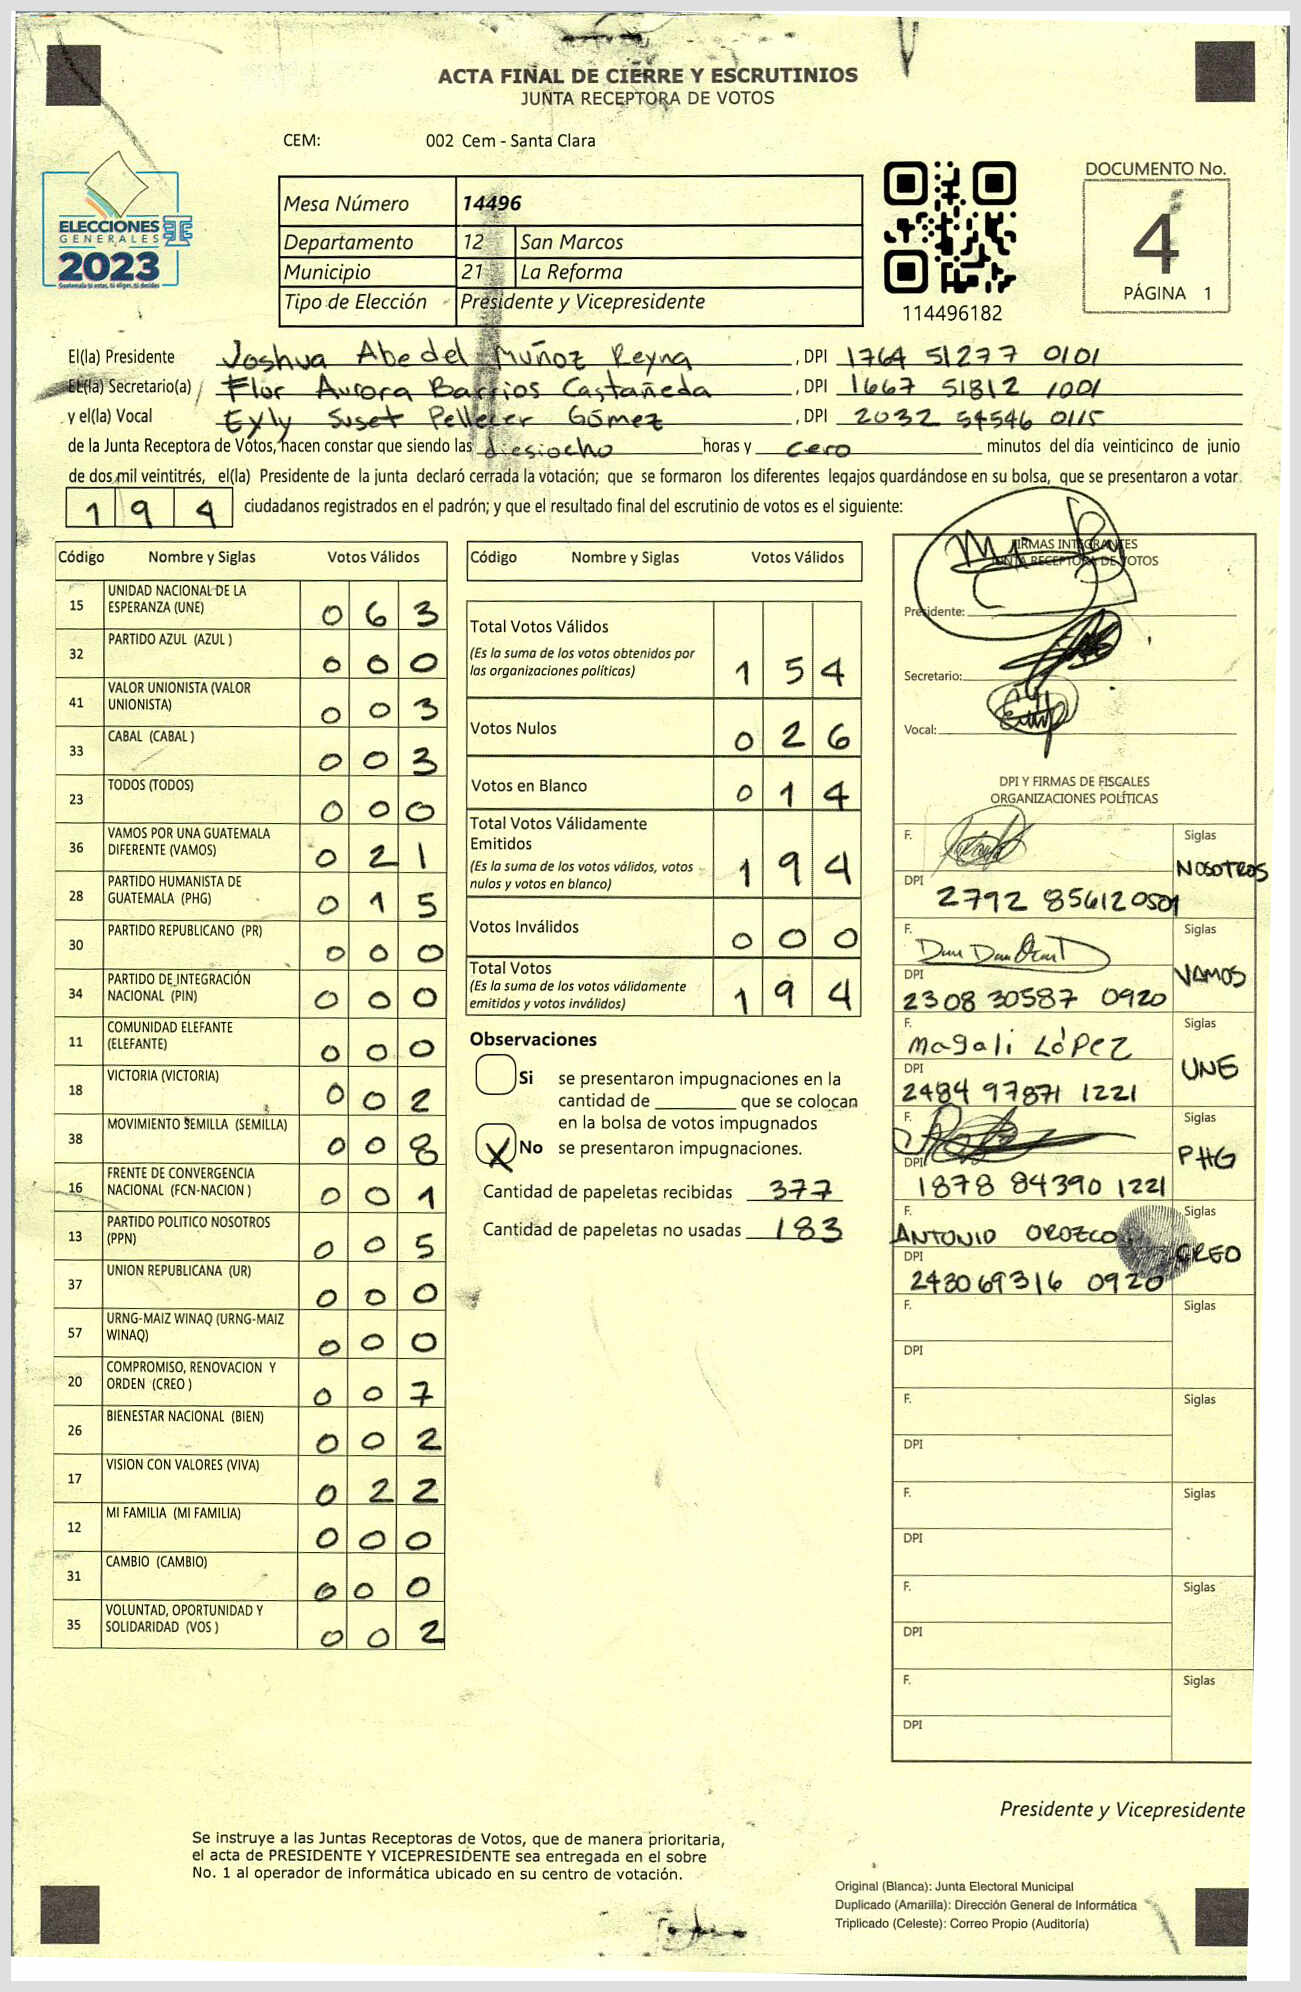 ACTA FINAL DE CIERRE Y ESCRUTINIOS
JUNTA RECEPTORA DE VOTOS
CEM: 002 Cem - Santa Clara
ELECCIONES
GENERALES
2023
Guatemala tú estas, tú eliges, tú decides
Mesa Número 14496
Departamento 12 San Marcos
Municipio 21 La Reforma
Tipo de Elección Presidente y Vicepresidente
114496182
DOCUMENTO No.
4
PÁGINA 1
El(la) Presidente Joshua Abedel Muñoz Reyna, DPI 1764 51277 0101
El(la) Secretario(a) Flor Aurora Barrios Castañeda, DPI 1667 51812 1001
y el(la) Vocal Exly Suset Pellecer Gómez, DPI 2032 54546 0115
de la Junta Receptora de Votos, hacen constar que siendo las diesiocho horas y cero minutos del día veinticinco de junio
de dos mil veintitrés, el(la) Presidente de la junta declaró cerrada la votación; que se formaron los diferentes legajos guardándose en su bolsa, que se presentaron a votar
194 ciudadanos registrados en el padrón; y que el resultado final del escrutinio de votos es el siguiente:
Código Nombre y Siglas Votos Válidos
15 UNIDAD NACIONAL DE LA ESPERANZA (UNE) 063
32 PARTIDO AZUL (AZUL ) 000
41 VALOR UNIONISTA (VALOR UNIONISTA) 003
33 CABAL (CABAL ) 003
23 TODOS (TODOS) 000
36 VAMOS POR UNA GUATEMALA DIFERENTE (VAMOS) 021
28 PARTIDO HUMANISTA DE GUATEMALA (PHG) 015
30 PARTIDO REPUBLICANO (PR) 000
34 PARTIDO DE INTEGRACIÓN NACIONAL (PIN) 000
11 COMUNIDAD ELEFANTE (ELEFANTE) 000
18 VICTORIA (VICTORIA) 002
38 MOVIMIENTO SEMILLA (SEMILLA) 008
16 FRENTE DE CONVERGENCIA NACIONAL (FCN-NACION ) 001
13 PARTIDO POLITICO NOSOTROS (PPN) 005
37 UNION REPUBLICANA (UR) 000
57 URNG-MAIZ WINAQ (URNG-MAIZ WINAQ) 000
20 COMPROMISO, RENOVACION Y ORDEN (CREO ) 007
26 BIENESTAR NACIONAL (BIEN) 002
17 VISION CON VALORES (VIVA) 022
12 MI FAMILIA (MI FAMILIA) 000
31 CAMBIO (CAMBIO) 000
35 VOLUNTAD, OPORTUNIDAD Y SOLIDARIDAD (VOS ) 002
Código Nombre y Siglas Votos Válidos
Total Votos Válidos
(Es la suma de los votos obtenidos por las organizaciones políticas) 154
Votos Nulos 026
Votos en Blanco 014
Total Votos Válidamente Emitidos
(Es la suma de los votos válidos, votos nulos y votos en blanco) 194
Votos Inválidos 000
Total Votos
(Es la suma de los votos válidamente emitidos y votos inválidos) 194
Observaciones
Si se presentaron impugnaciones en la
cantidad de ________ que se colocan
en la bolsa de votos impugnados
X No se presentaron impugnaciones.
Cantidad de papeletas recibidas 377
Cantidad de papeletas no usadas 183
FIRMAS INTEGRANTES
JUNTA RECEPTORA DE VOTOS
Presidente:
Secretario:
Vocal:
DPI Y FIRMAS DE FISCALES
ORGANIZACIONES POLÍTICAS
F. Siglas NOSOTROS
DPI 2792 85612 0509
F. Siglas VAMOS
DPI 2308 30587 0920
F. Magali López Siglas UNE
DPI 2484 97871 1221
F. Siglas PHG
DPI 1878 84390 1221
F. ANTONIO OROZCO Siglas CREO
DPI 243069316 0920
F. Siglas
DPI
F. Siglas
DPI
F. Siglas
DPI
F. Siglas
DPI
F. Siglas
DPI
Presidente y Vicepresidente
Se instruye a las Juntas Receptoras de Votos, que de manera prioritaria,
el acta de PRESIDENTE Y VICEPRESIDENTE sea entregada en el sobre
No. 1 al operador de informática ubicado en su centro de votación.
Original (Blanca): Junta Electoral Municipal
Duplicado (Amarilla): Dirección General de Informática
Triplicado (Celeste): Correo Propio (Auditoría)